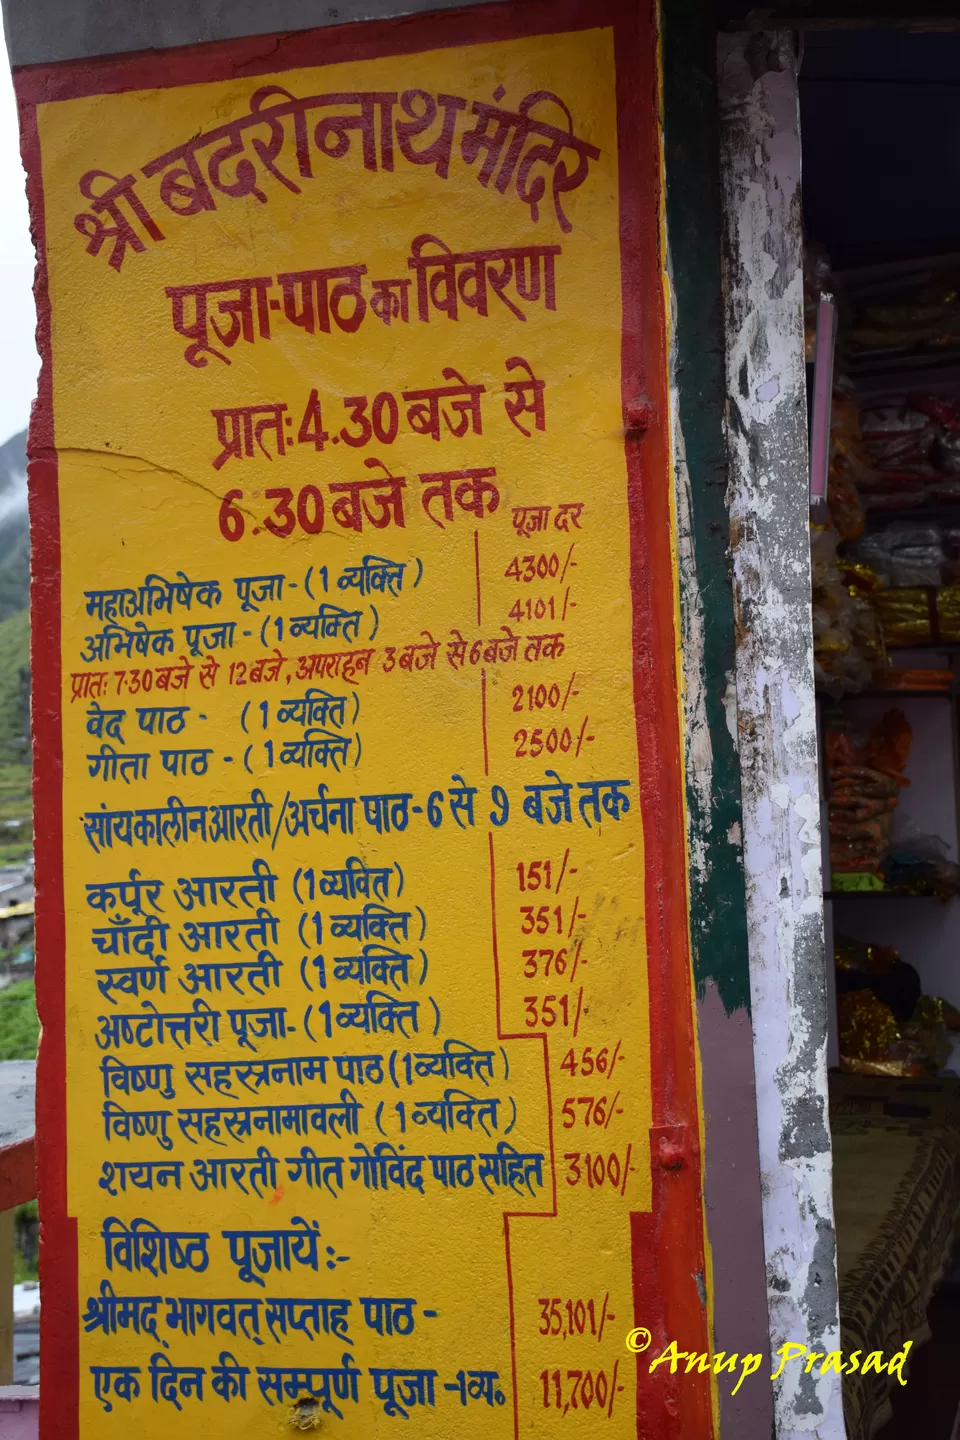 श्री बदरीनाथ मंदिर
पूजा-पाठ का विवरण
प्रातः 4.30 बजे से
6.30 बजे तक
पूजा दर
महाअभिषेक पूजा - (1 व्यक्ति) 4300/-
अभिषेक पूजा - (1 व्यक्ति) 4101/-
प्रातः 7.30 बजे से 12 बजे, अपराहन 3 बजे से 6 बजे तक
वेद पाठ - (1 व्यक्ति) 2100/-
गीता पाठ - (1 व्यक्ति) 2500/-
सांयकालीन आरती/अर्चना पाठ - 6 से 9 बजे तक
कर्पूर आरती (1 व्यवित) 151/-
चाँदी आरती (1 व्यक्ति) 351/-
स्वर्ण आरती (1 व्यक्ति) 376/-
अष्टोत्तरी पूजा - (1 व्यक्ति) 351/-
विष्णु सहस्त्रनाम पाठ (1 व्यक्ति) 456/-
विष्णु सहस्त्रनामावली (1 व्यक्ति) 576/-
शयन आरती गीत गोविंद पाठ सहित 3100/-
विशिष्ठ पूजायें :-
श्रीमद् भागवत् सप्ताह पाठ - 35,101/-
एक दिन की सम्पूर्ण पूजा - 1 व्य॰ 11,700/-
© Anup Prasad